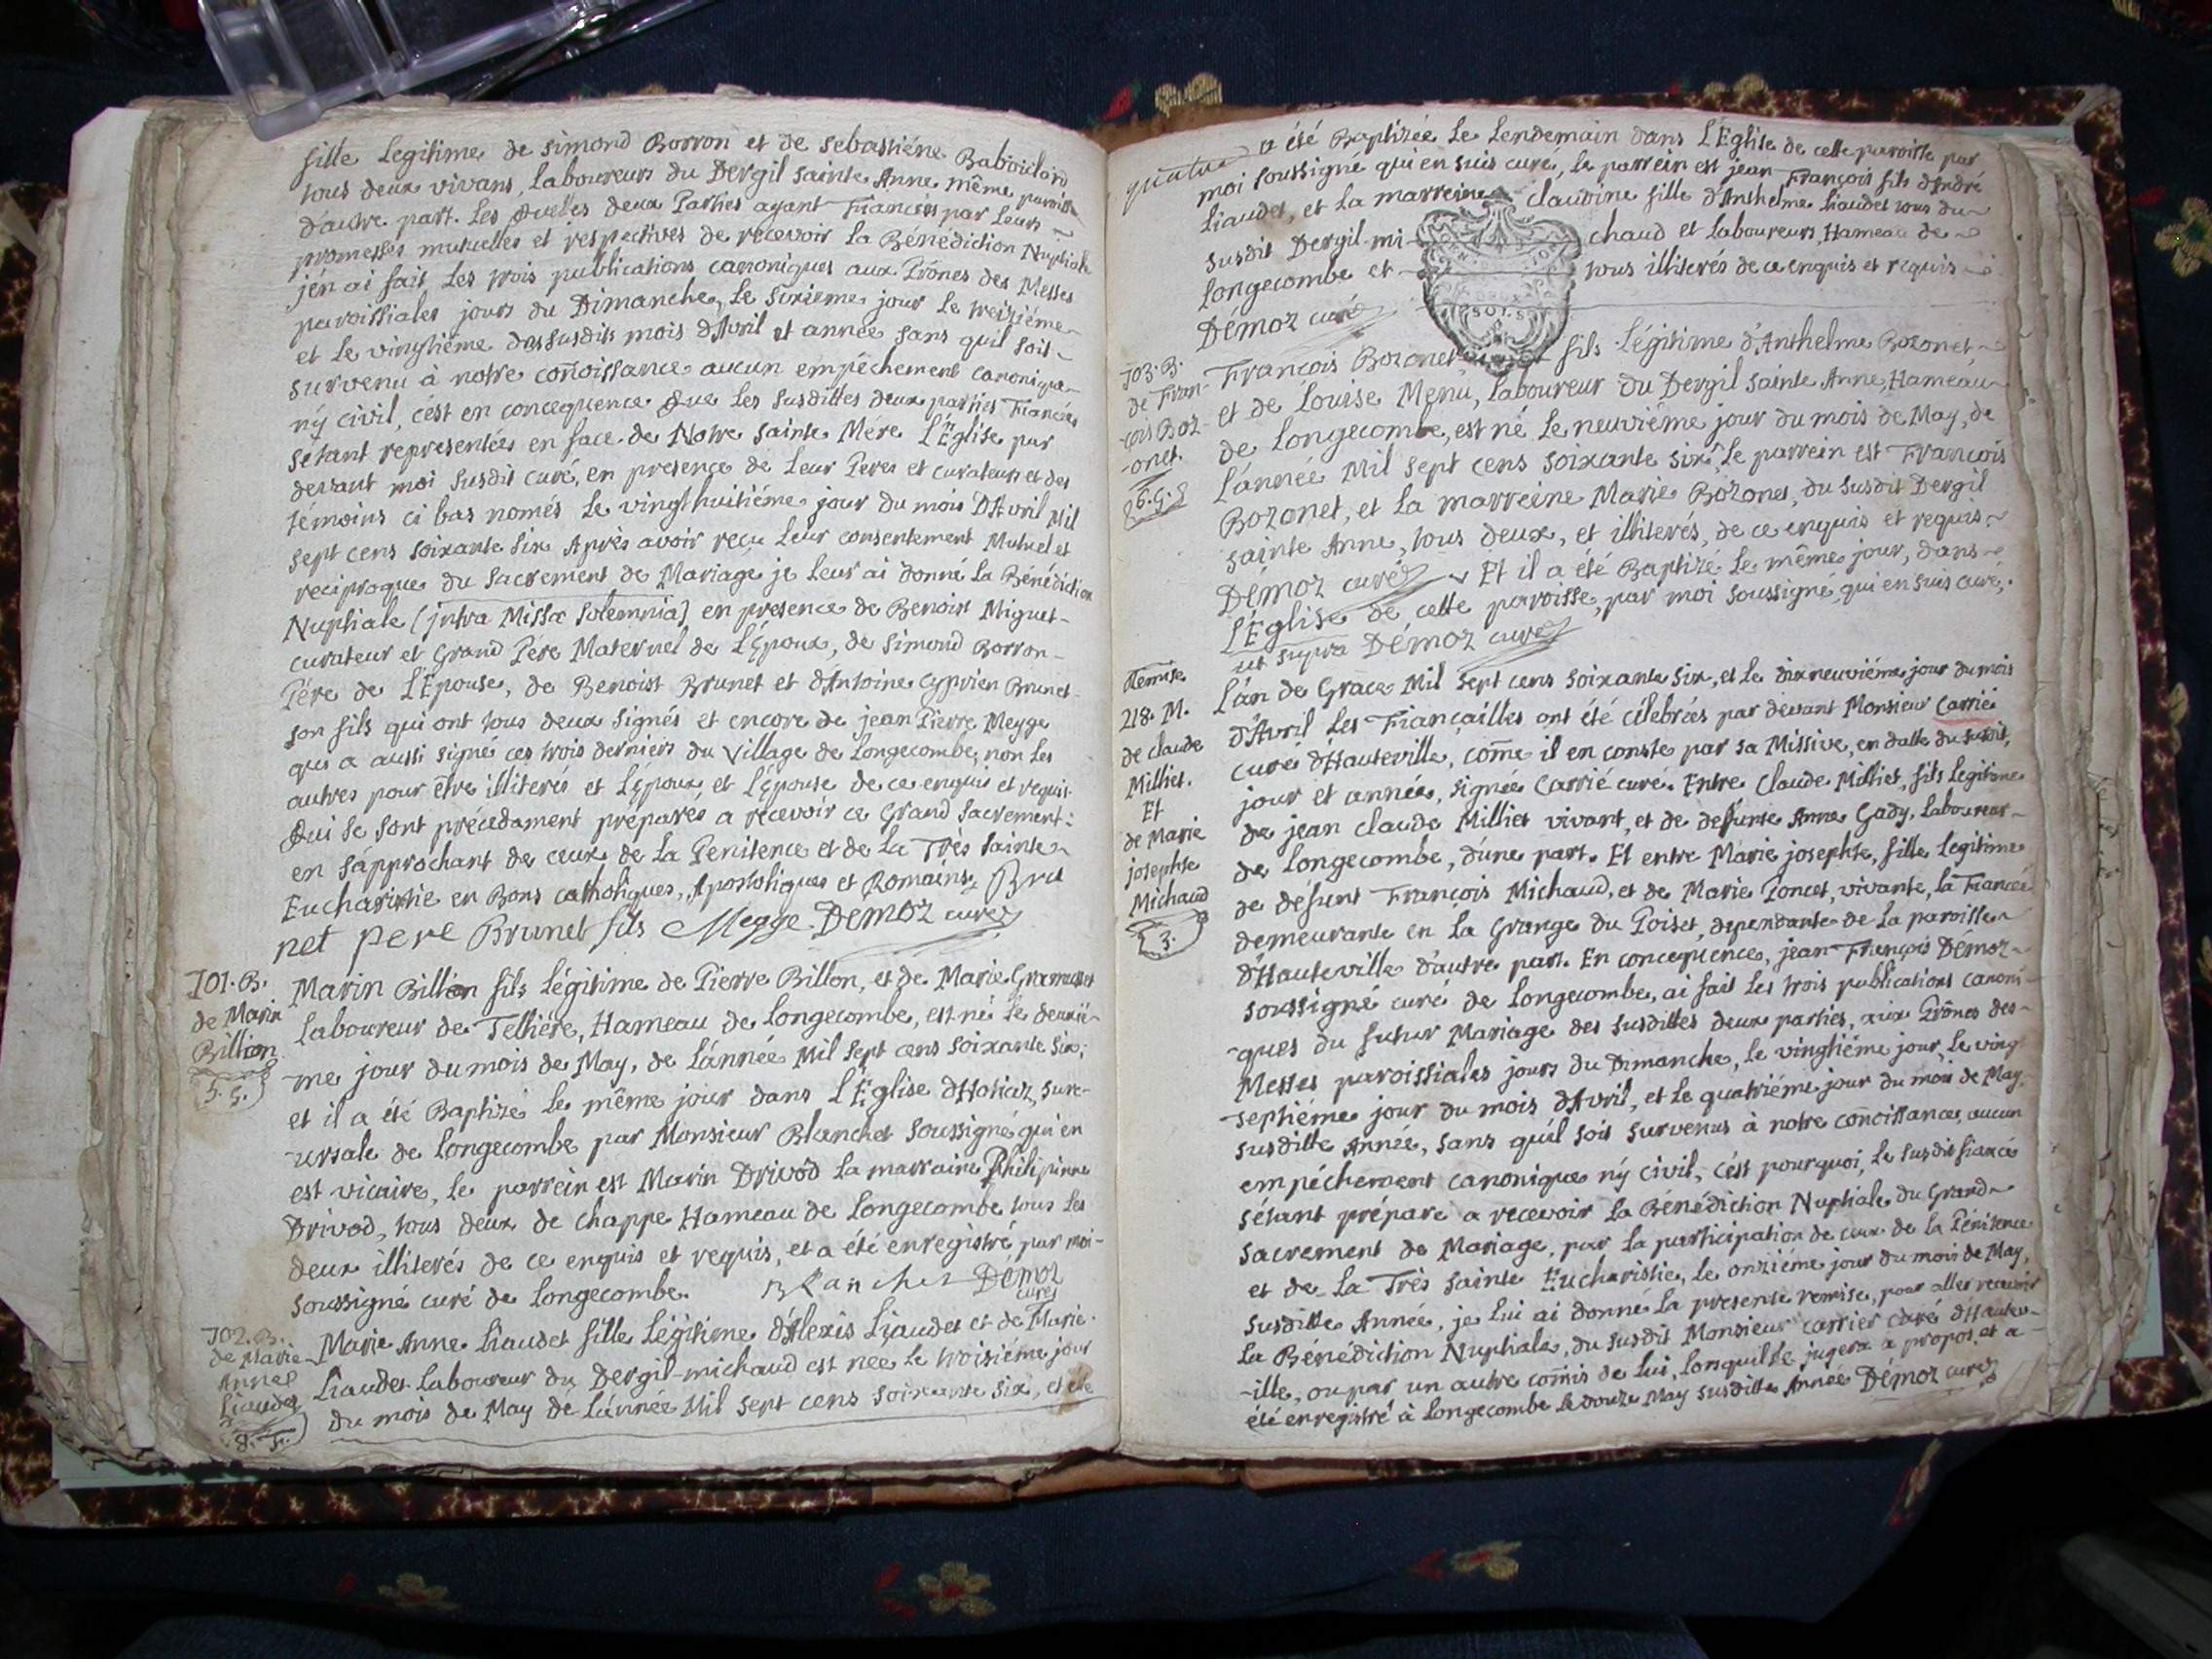 fille Legitime de simond Borron et de sebastiéne Babouillard
tous deux vivans, laboureurs du Dergil sainte Anne même paroisse
d'autre part. Les quelles deux Parties ayant Fiancées par Leurs
promesses mutuelles et respectives de recevoir la Bénédiction Nuptiale
j'en ai fait Les trois publications canoniques aux Prônes des Messes
paroissiales jours du Dimanche, Le sixieme jour le treiziéme
et Le vingtiéme des susdits mois d'Avril et année sans qu'il soit
survenu à notre connoissance aucun empêchement canonique
ny civil, c'est en concequence Que Les susdittes deux parties Fiancées
s'etant representées en face de Notre sainte Mere L'Église par
devant moi susdit curé, en presence de Leur Peres et curateurs et des
témoins ci bas només Le vingt huitiéme jour du mois D'Avril Mil
sept cens soixante six Après avoir reçu Leur consentement Mutuel et
reciproque du sacrement de Mariage je Leur ai donné La Bénédiction
Nuptiale (jntra Missæ solemnia) en presence de Benoist Miguet
curateur et Grand Pére Maternel de L'Époux, de simond Borron
Pére de L'Épouse, de Benoist Brunet et d'Antoine Cyprien Brunet
son fils qui ont tous deux signés et encore de jean Pierre Megge
qui a aussi signé ces trois derniers du Village de Longecombe, non Les
autres pour être illiterés et L'Époux et L'Épouse de ce enquis et requis
Qui se sont précédament préparés a recevoir ce Grand sacrement:
en s'approchant de ceux de La Penitence et de La Très sainte
Eucharistie en Bons catholiques, Apostoliques et Romains Bru
net pere Brunet fils Megge DÉMOZ curé
101. B.
de Marin
Billion
5. G.
Marin Billion fils Légitime de Pierre Billon, et de Marie Gramusset
Laboureur de Telliére, Hameau de Longecombe, est né Le deuxié-
me jour du mois de May, de L'année Mil sept cens soixante six;
et il a été Baptizé Le même jour dans L'Église d'Hotiaz, suc-
-ursale de Longecombe par Monsieur Blanchet soussigné qui en
est vicaire, Le parrein est Marin Drivod La marraine Philipinne
Drivod, tous deux de chappe Hameau de Longecombe tous Les
deux illiterés de ce enquis et requis, et a été enregistré par moi
soussigné curé de Longecombe. Blanchet DÉMOZ
curé
102. B.
de Marie
Anne
Liaudet
8. F.
Marie Anne Liaudet fille Légitime d'Alexis Liaudet et de Marie
Liaudet Laboureur du Dergil-michaud est née Le troisiéme jour
du mois de May de L'année Mil sept cens soixante six, et elle
a été Baptizée Le Lendemain dans L'Église de cette paroisse par
moi soussigné qui en suis curé, Le parrein est jean François fils d'André
Liaudet, et La marreine Claudine fille d'Anthelme Liaudet tous du
susdit Dergil-mi- chaud et Laboureurs, Hameau de
Longecombe et tous illiterés de ce enquis et requis
DÉMOZ curé
SOLS
103. B.
de Fran-
-cois Boz-
-onet.
6. G.
François Bozonet fils Légitime d'Anthelme Bozonet,
et de Louise Menu, Laboureur du Dergil sainte Anne, Hameau
de Longecombe, est né Le neuviéme jour du mois de May, de
L'année Mil sept cens soixante six, Le parrein est François
Bozonet, et La marreine Marie Bozonet, du susdit Dergil
sainte Anne, tous deux, et illiterés, de ce enquis et requis,
DÉMOZ curé Et il a été Baptizé Le même jour, dans
L'Église de cette paroisse, par moi soussigné, qui en suis curé,
ut supra DÉMOZ curé
Remise
218. M.
de Claude
Milliet.
Et
de Marie
josephte
Michaud
3.
L'an de Grace Mil sept cens soixante six, et Le dix neuviéme jour du mois
d'Avril Les Fiançailles ont été célébrées par devant Monsieur Carrié
curé d'Hauteville, come il en conste par sa Missive, en datte du susdit,
jour et année, signée Carrié curé. Entre Claude Milliet, fils Legitime
de jean claude Milliet vivant, et de defunte Anne Gady, Laboureur
de Longecombe, d'une part. Et entre Marie josephte, fille Legitime
de défunt François Michaud, et de Marie Poncet, vivante, la Fiancée
demeurante en La Grange du Poiset, dependante de La paroisse
d'Hauteville d'autre part. En concequence, jean François Démoz
soussigné curé de Longecombe, ai fait Les trois publications canoni-
-ques du futur Mariage des susdittes deux parties, aux Prônes des
Messes paroissiales jours du Dimanche, Le vingtiéme jour, Le ving
septiéme jour du mois d'Avril, et Le quatriéme jour du mois de May
susditte Année, sans qu'il soit survenus à notre connoissance, aucun
empéchement canonique ny civil, c'est pourquoi, Le susdit fiancé
s'étant préparé a recevoir La Bénédiction Nuptiale du Grand
sacrement de Mariage, par La participation de ceux de La Pénitence
et de La Très sainte Eucharistie, Le onziéme jour du mois de May,
susditte Année, je Lui ai donné La presente remise, pour aller recevoir
La Bénédiction Nuptiale, du susdit Monsieur Carrier curé d'Hautev-
-ille, ou par un autre comis de Lui, Lorsqu'il Le jugera a propos, et a
été enregistré à Longecombe Le douze May susditte Année DÉMOZ curé